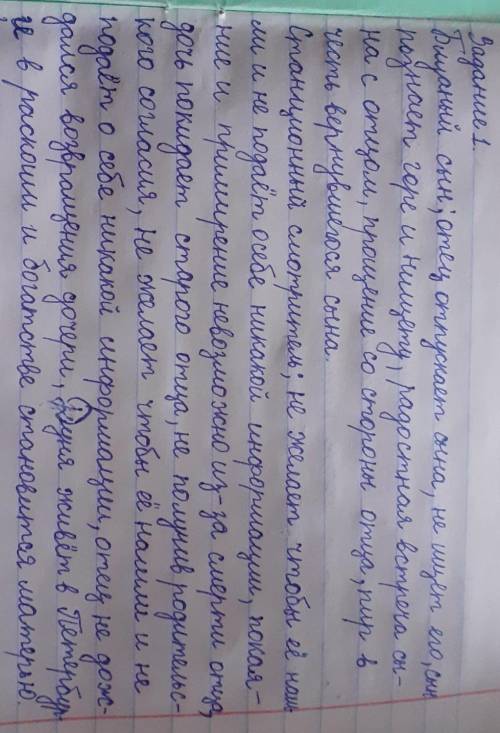 Задание 1.
Блудный сын; отец отпускает сына, не ищет его, сын
познает горе и нищету, радостная встреча сы-
на с отцом, прощение со стороны отца, пир в
честь вернувшегося сына.
Станционный смотритель; не желает чтобы её наш
ли и не подаёт о себе никакой информации, покая-
ние и примирение невозможно из-за смерти отца,
дочь покидает старого отца, не получив родительс-
кого согласия, не желает чтобы её нашли и не
подаёт о себе никакой информации, отец не дож-
дался возвращения дочери, Дуня живёт в Петербур
ге в раскоши и богатстве становится матерью.